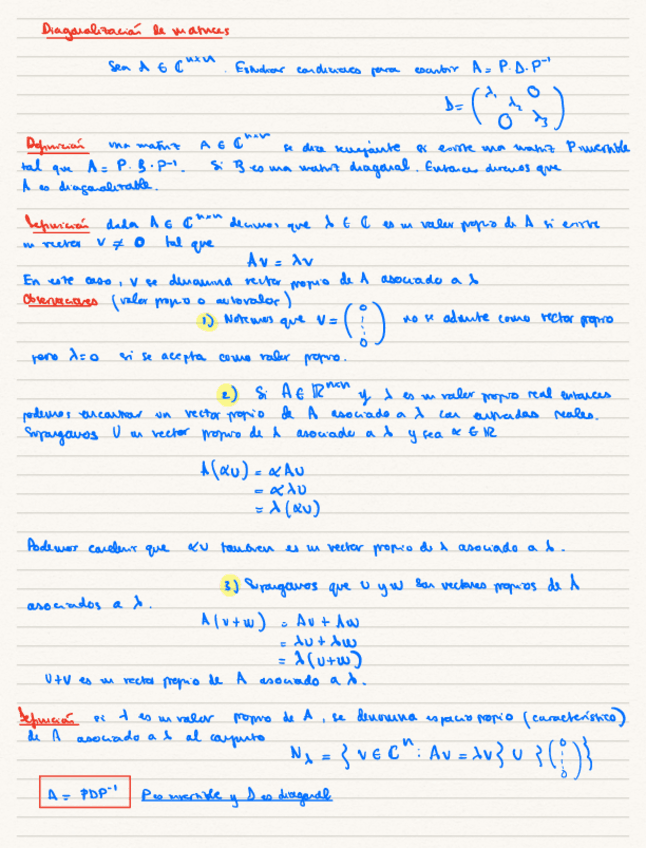 Diagonalización de matrices
Sea A ∈ ℂⁿˣⁿ. Estudiar condiciones para escribir A = P·D·P⁻¹
D = (λ₁ λ₂ λ₃ 0 0)
Definición una matriz A ∈ ℂⁿˣⁿ se dice semejante si existe una matriz P invertible
tal que A = P·B·P⁻¹. Si B es una matriz diagonal. Entonces diremos que
A es diagonalizable.
Definición dada A ∈ ℂⁿˣⁿ decimos que λ ∈ ℂ es un valor propio de A si existe
un vector v ≠ 0 tal que
Av = λv
En este caso, v se denomina vector propio de A asociado a λ
Observaciones (valor propio o autovalor)
1) Notemos que v = (0 ⋮ 0) no se admite como vector propio
pero λ=0 si se acepta como valor propio.
2) Si A ∈ ℝⁿˣⁿ y λ es un valor propio real entonces
podemos encontrar un vector propio de A asociado a λ con entradas reales.
Supongamos v un vector propio de A asociado a λ y sea α ∈ ℝ
A(αv) = αAv
= αλv
= λ(αv)
Podemos concluir que αv también es un vector propio de A asociado a λ.
3) Supongamos que v y w son vectores propios de A
asociados a λ.
A(v+w) = Av + Aw
= λv + λw
= λ(v+w)
v+v es un vector propio de A asociado a λ.
Definición si λ es un valor propio de A, se denomina espacio propio (característico)
de A asociado a λ al conjunto
N_λ = { v ∈ ℂⁿ : Av = λv } ∪ {(0 ⋮ 0)}
A = PDP⁻¹ P es invertible y D es diagonal